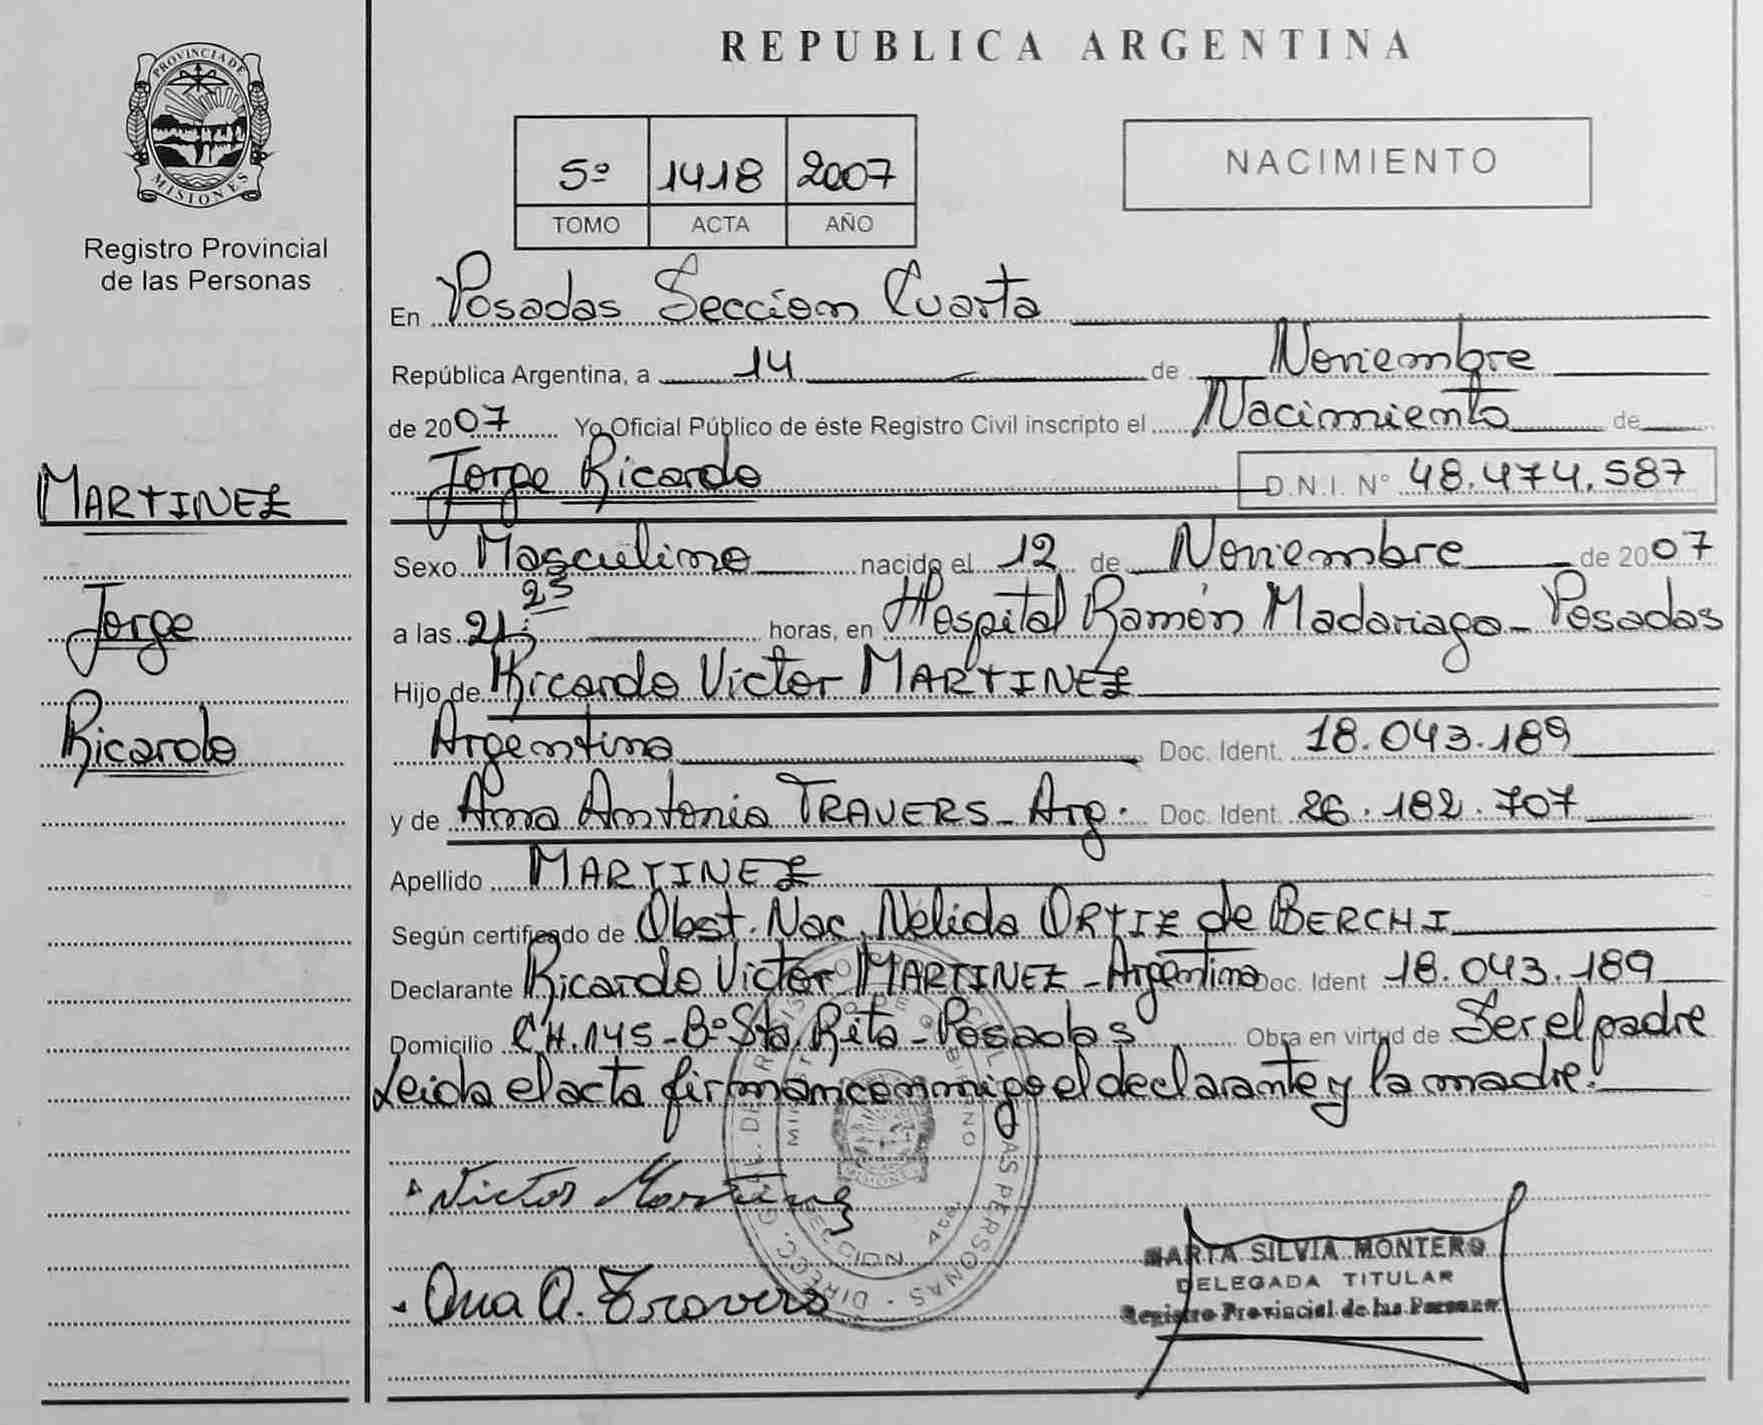 PROVINCIA DE
MISIONES
Registro Provincial
de las Personas
MARTINEZ
Jorge
Ricardo
REPUBLICA ARGENTINA
5º 1418 2007
TOMO ACTA AÑO
NACIMIENTO
En Posadas Seccion Cuarta
República Argentina, a 14 de Noviembre
de 2007 Yo Oficial Público de éste Registro Civil inscripto el Nacimiento de
Jorge Ricardo D.N.I. Nº 48.474.587
Sexo Masculino nacido el 12 de Noviembre de 2007
a las 21:23 horas, en Hospital Ramón Madariaga - Posadas
Hijo de Ricardo Victor MARTINEZ
Argentino Doc. Ident. 18.043.189
y de Ana Antonia TRAVERS - Arg. Doc. Ident. 26.182.707
Apellido MARTINEZ
Según certificado de Obst. Nac. Nelida ORTIZ de BERCHI
Declarante Ricardo Victor MARTINEZ - Argentino Doc. Ident 18.043.189
Domicilio CH. 145 - Bº Sta. Rita - Posadas Obra en virtud de Ser el padre
Leida el acta firman conmigo el declarante y la madre.
Victor Martinez
Ana A. Travers
MARTA SILVIA MONTERO
DELEGADA TITULAR
Registro Provincial de las Personas